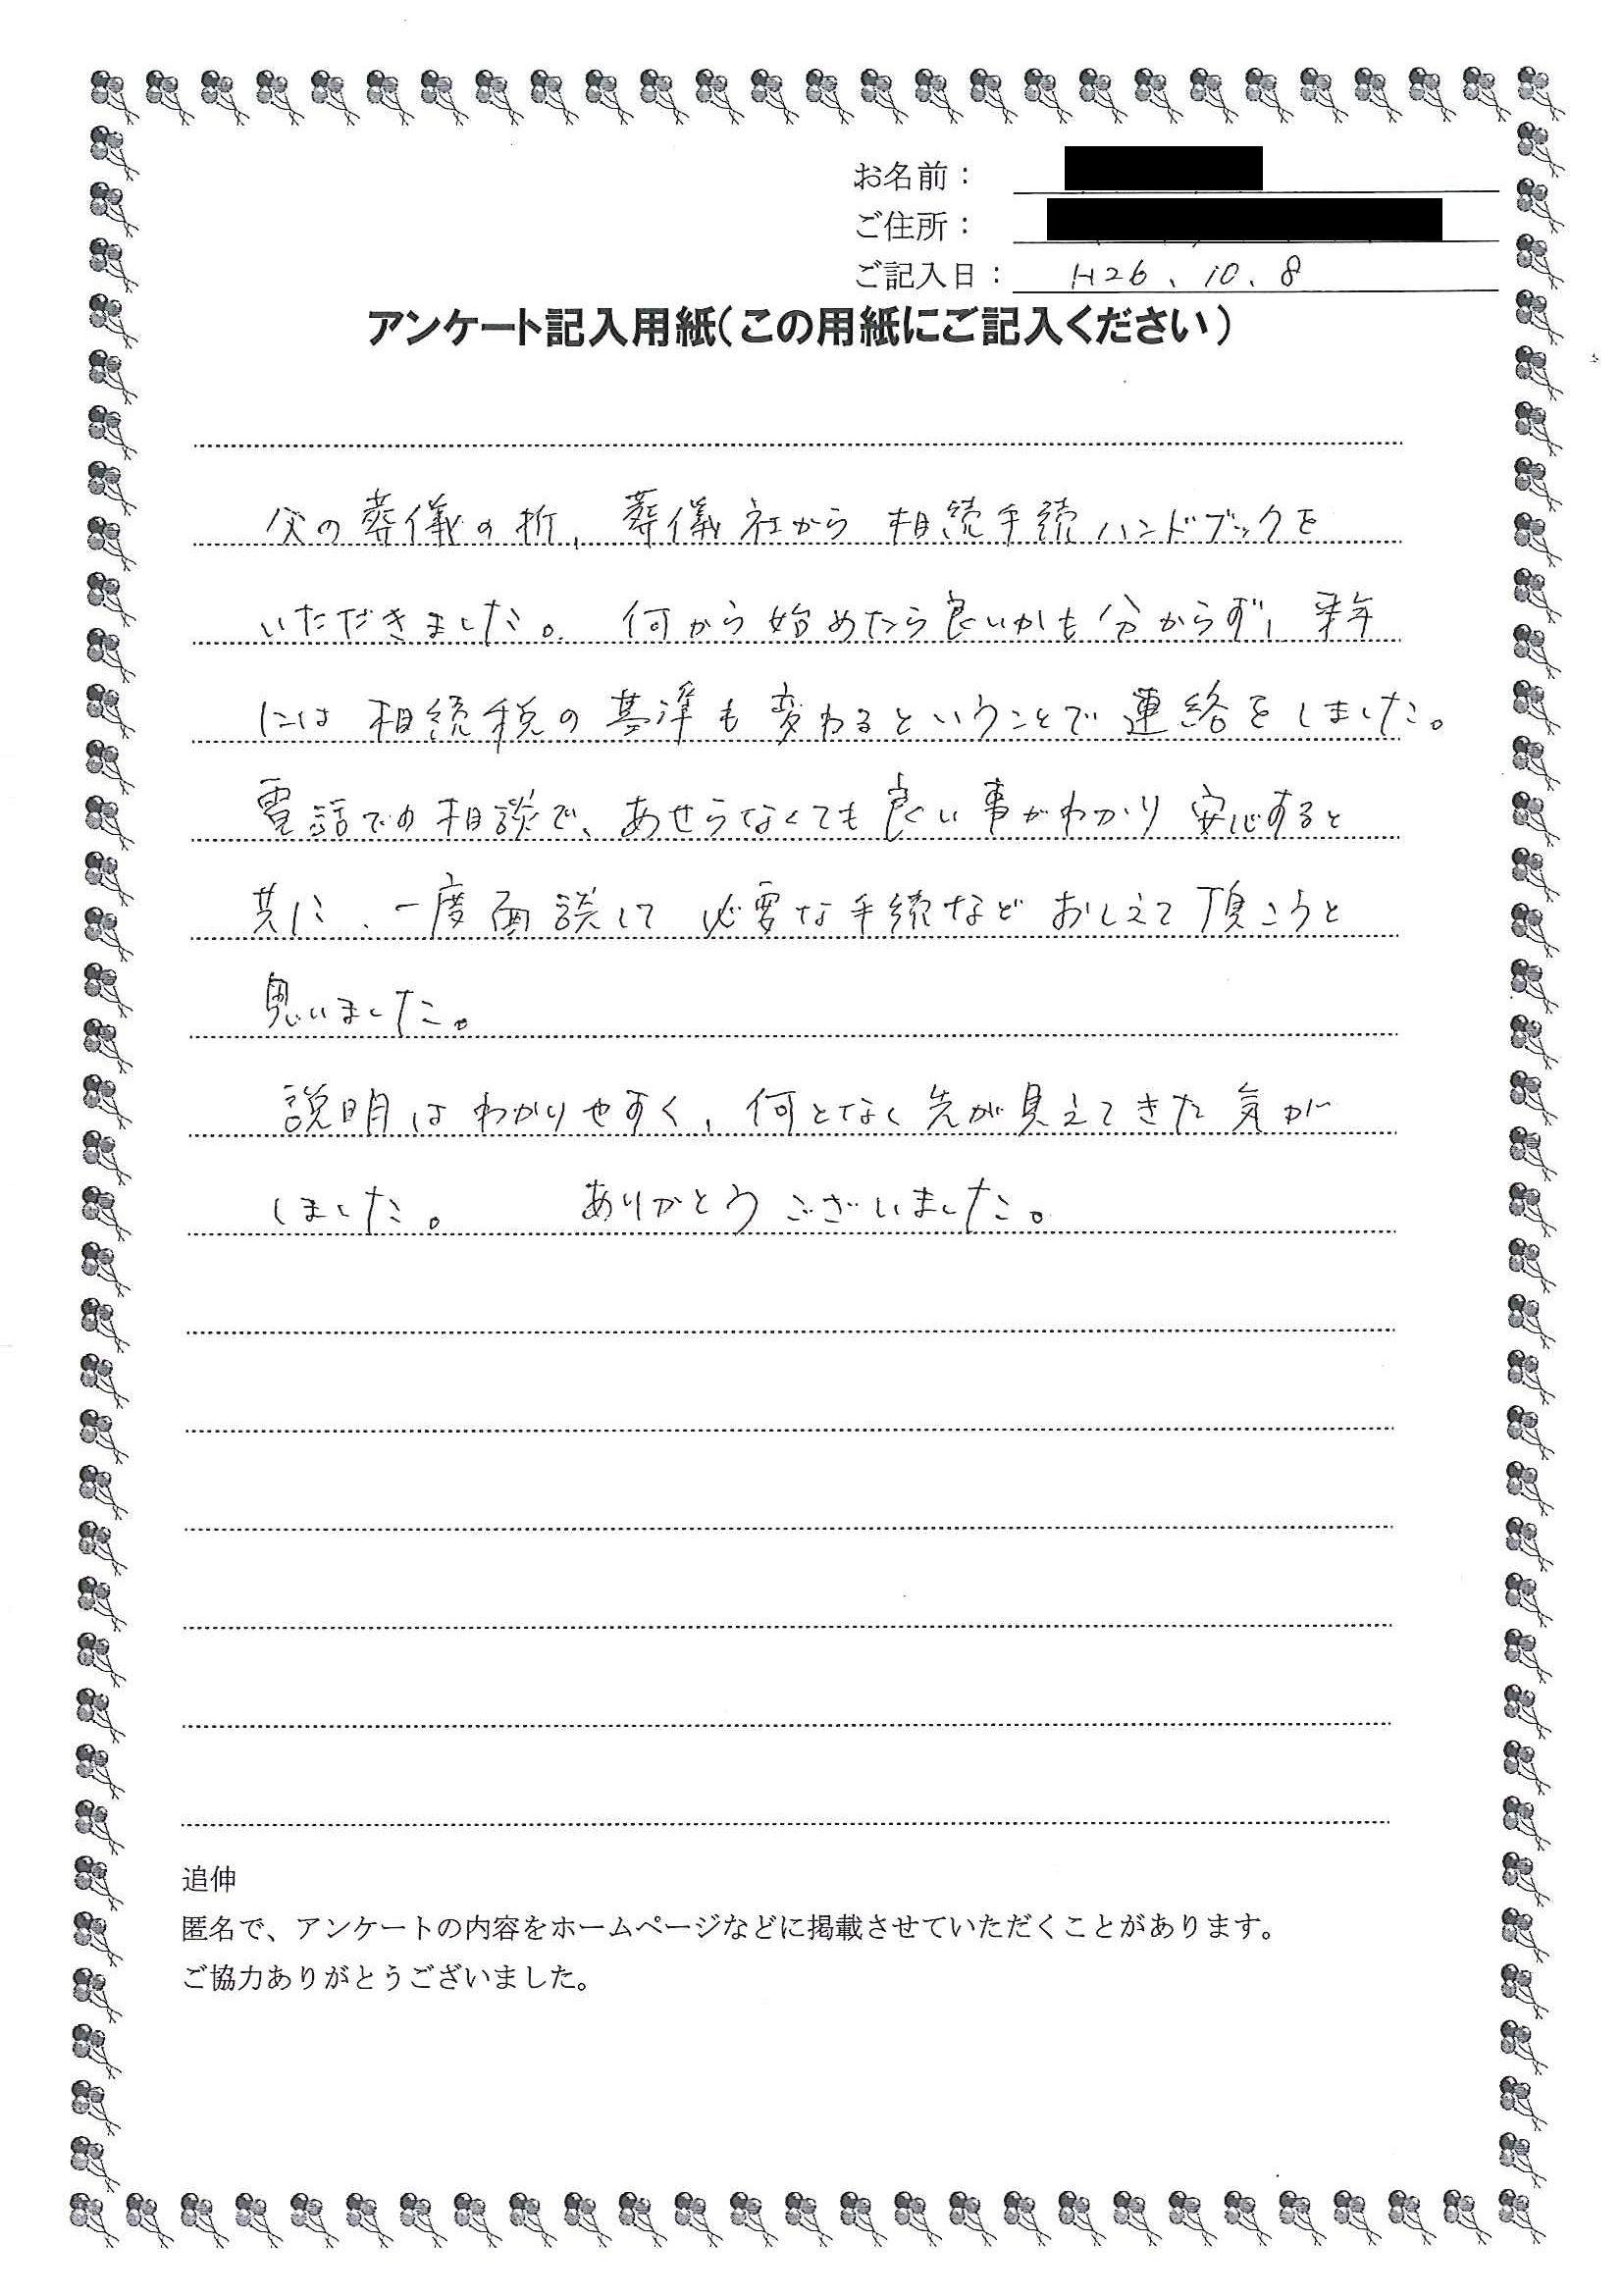 お名前：
ご住所：
ご記入日： H26、10、8
アンケート記入用紙（この用紙にご記入ください）
父の葬儀の折、葬儀社から相続手続ハンドブックを
いただきました。何から始めたら良いかも分からず、来年
には相続税の基準も変わるということで連絡をしました。
電話での相談で、あせらなくても良い事がわかり安心すると
共に、一度面談して必要な手続などおしえて頂こうと
思いました。
説明はわかりやすく、何となく先が見えてきた気が
しました。 ありがとうございました。
追伸
匿名で、アンケートの内容をホームページなどに掲載させていただくことがあります。
ご協力ありがとうございました。